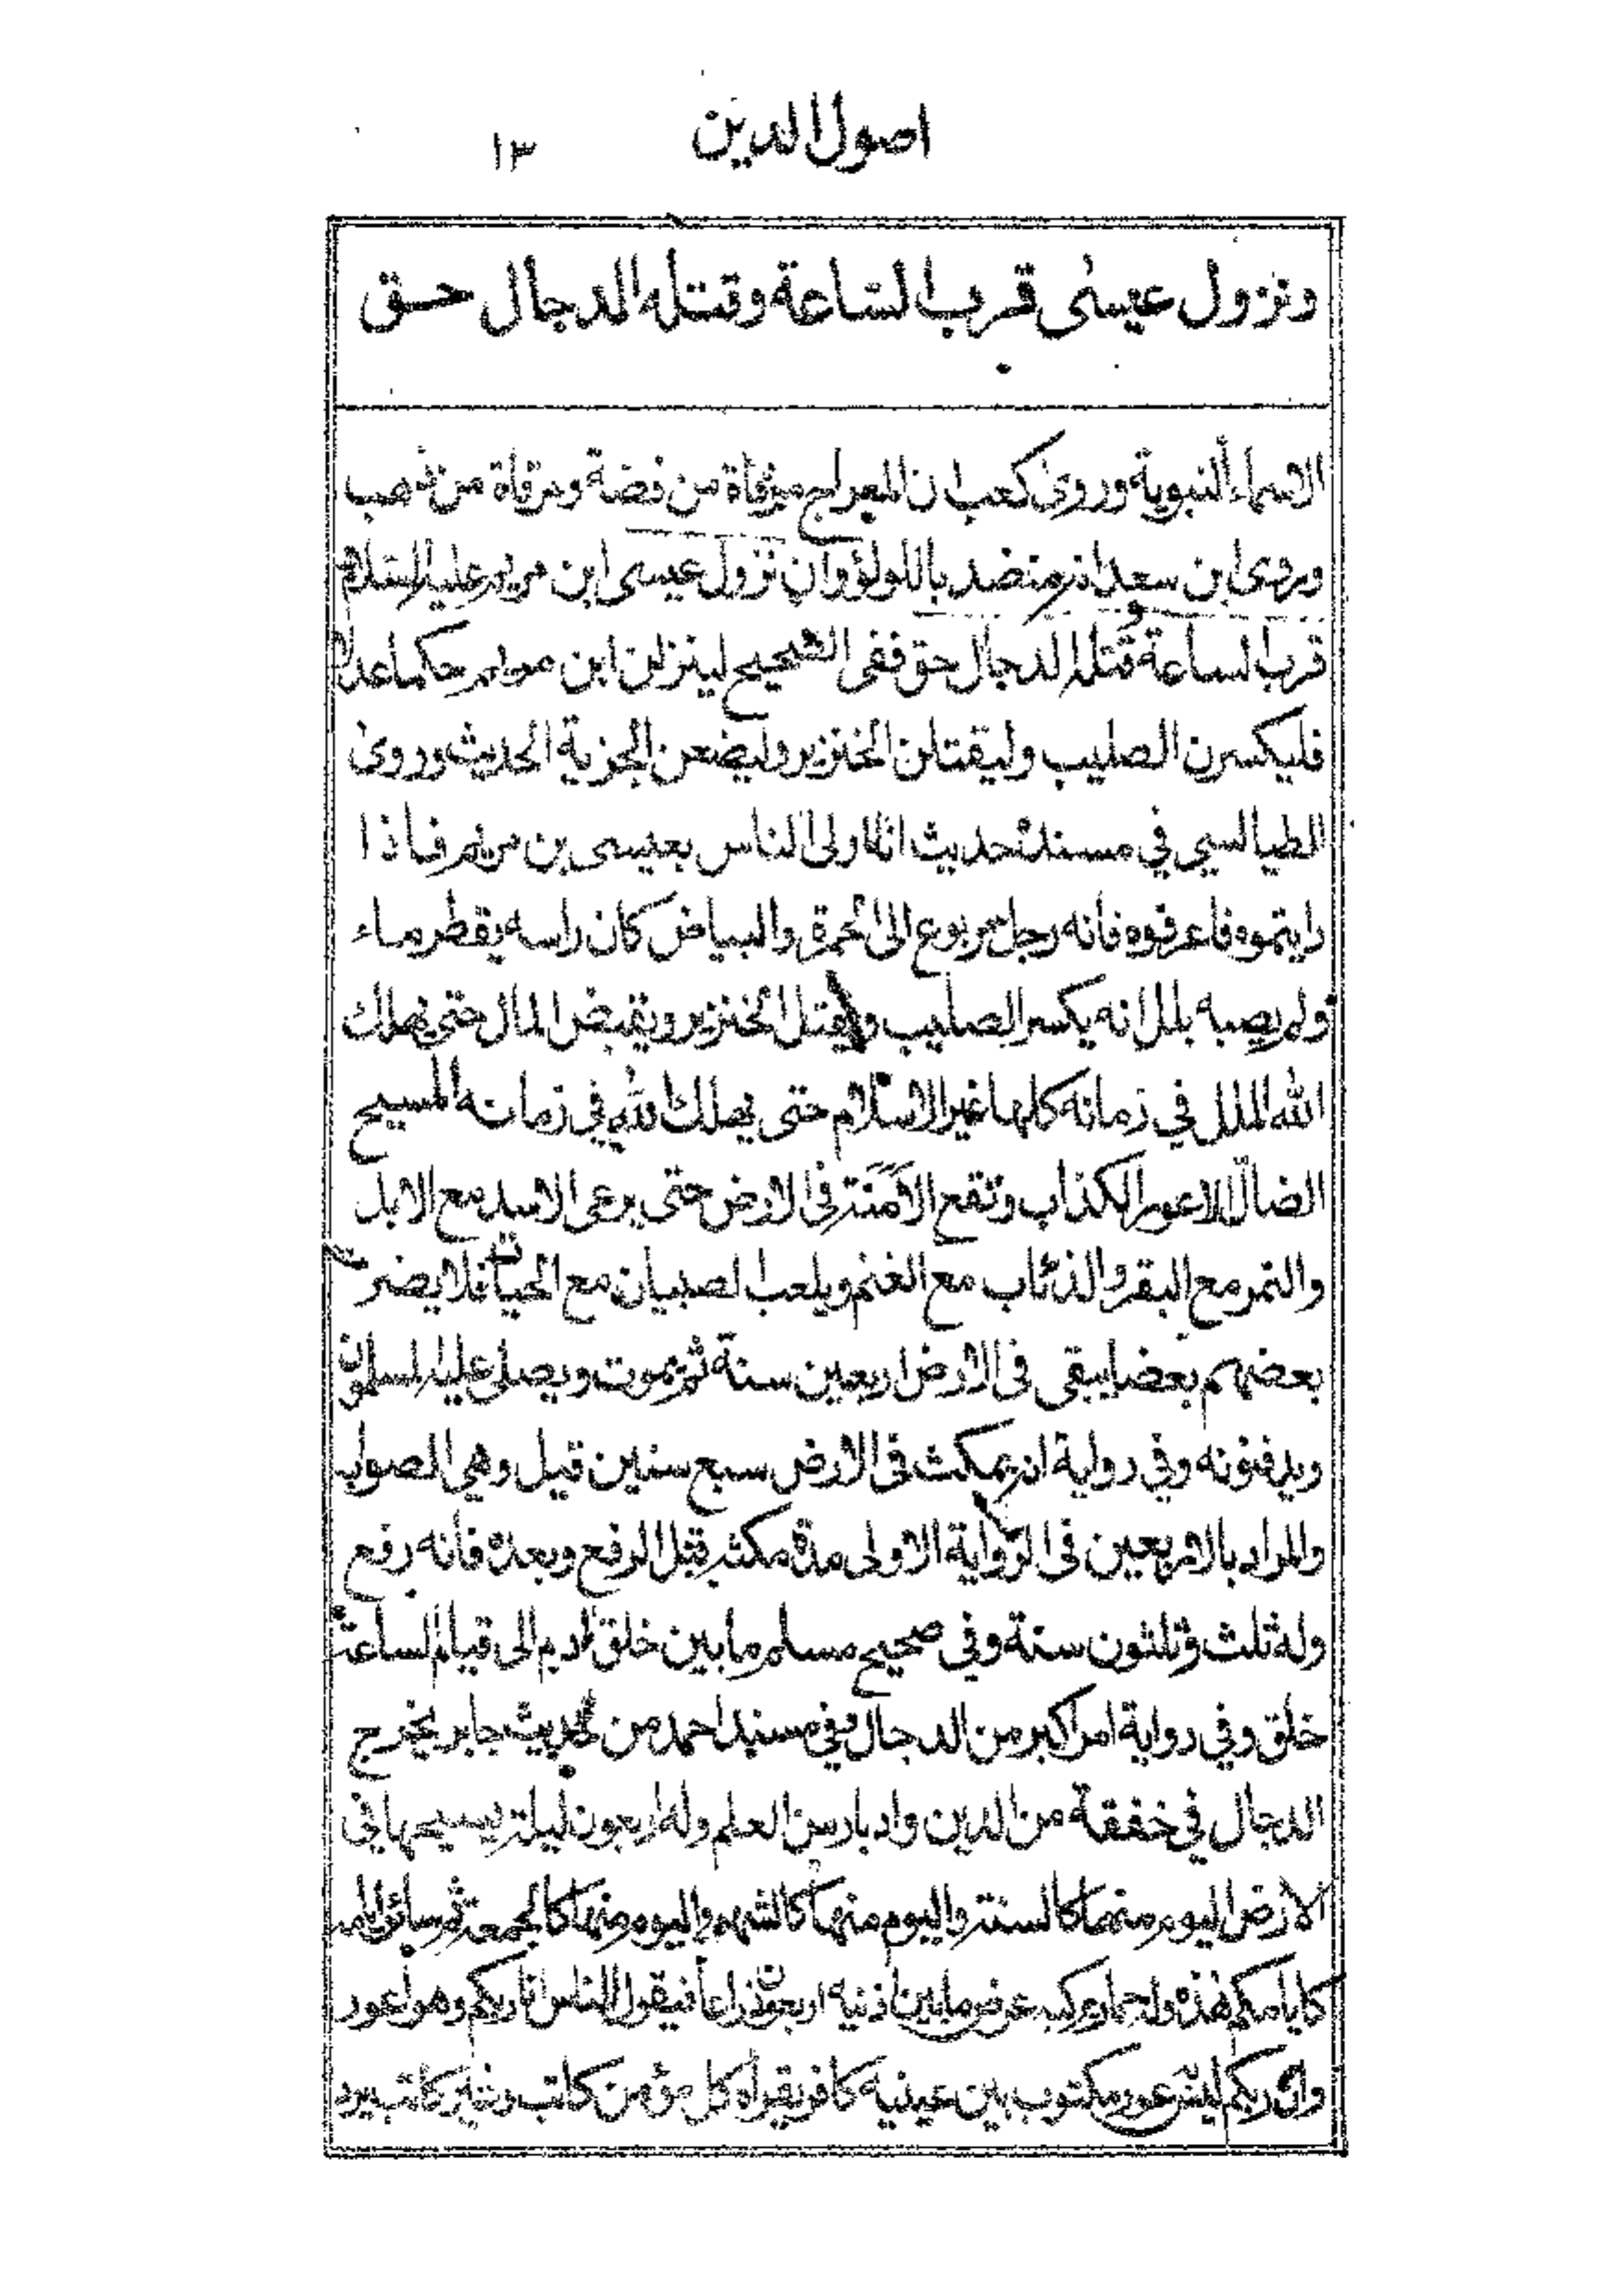 اصول الدين ١٣
ونزول عيسى قرب الساعة وقتله الدجال حق
الاسماء النبوية وروى كعب ان المعراج مرقاة من فضة ومرقاة من ذهب
وروى ابن سعد انه منضد باللؤلؤ وان نزول عيسى ابن مريم عليه السلام
قرب الساعة وقتله الدجال حق ففى الصحيح لينزلن ابن مريم حكما عدلا
فليكسرن الصليب وليقتلن الخنزير وليضعن الجزية الحديث وروى
الطيالسي في مسنده حديث انا اولى الناس بعيسى بن مريم فاذا
رايتموه فاعرفوه فانه رجل مربوع الى الحمرة والبياض كان راسه يقطر ماء
ولم يصبه بلل انه يكسر الصليب ويقتل الخنزير ويقبض المال حتى يهلك
الله الملل في زمانه كلها غير الاسلام حتى يهلك الله في زمانه المسيح
الضالّ الاعور الكذاب وتقع الامنة في الارض حتى يرعى الاسد مع الابل
والنمر مع البقر والذئاب مع الغنم ويلعب الصبيان مع الحيات فلا يضر
بعضهم بعضا يبقى فى الارض اربعين سنة ثم يموت ويصلى عليه المسلمون
ويدفنونه وفي رواية انه يمكث فى الارض سبع سنين قيل وهي الصواب
والمراد بالاربعين فى الرواية الاولى مدة مكثه قبل الرفع وبعده فانه رفع
وله ثلث وثلثون سنة وفي صحيح مسلم ما بين خلق ادم الى قيام الساعة
خلق وفي رواية امر اكبر من الدجال وفي مسند احمد من حديث جابر يخرج
الدجال في خفقة من الدين وادبار من العلم وله اربعون ليلة يسيحها في
الارض اليوم منها كالسنة واليوم منها كالشهر واليوم منها كالجمعة ثم سائر ايامه
كايامكم هذه وله حمار يركبه عرض ما بين اذنيه اربعون ذراعا فيقول للناس انا ربكم وهو اعور
وان ربكم ليس باعور مكتوب بين عينيه كافر يقرأه كل مؤمن كاتب وغير كاتب يرد